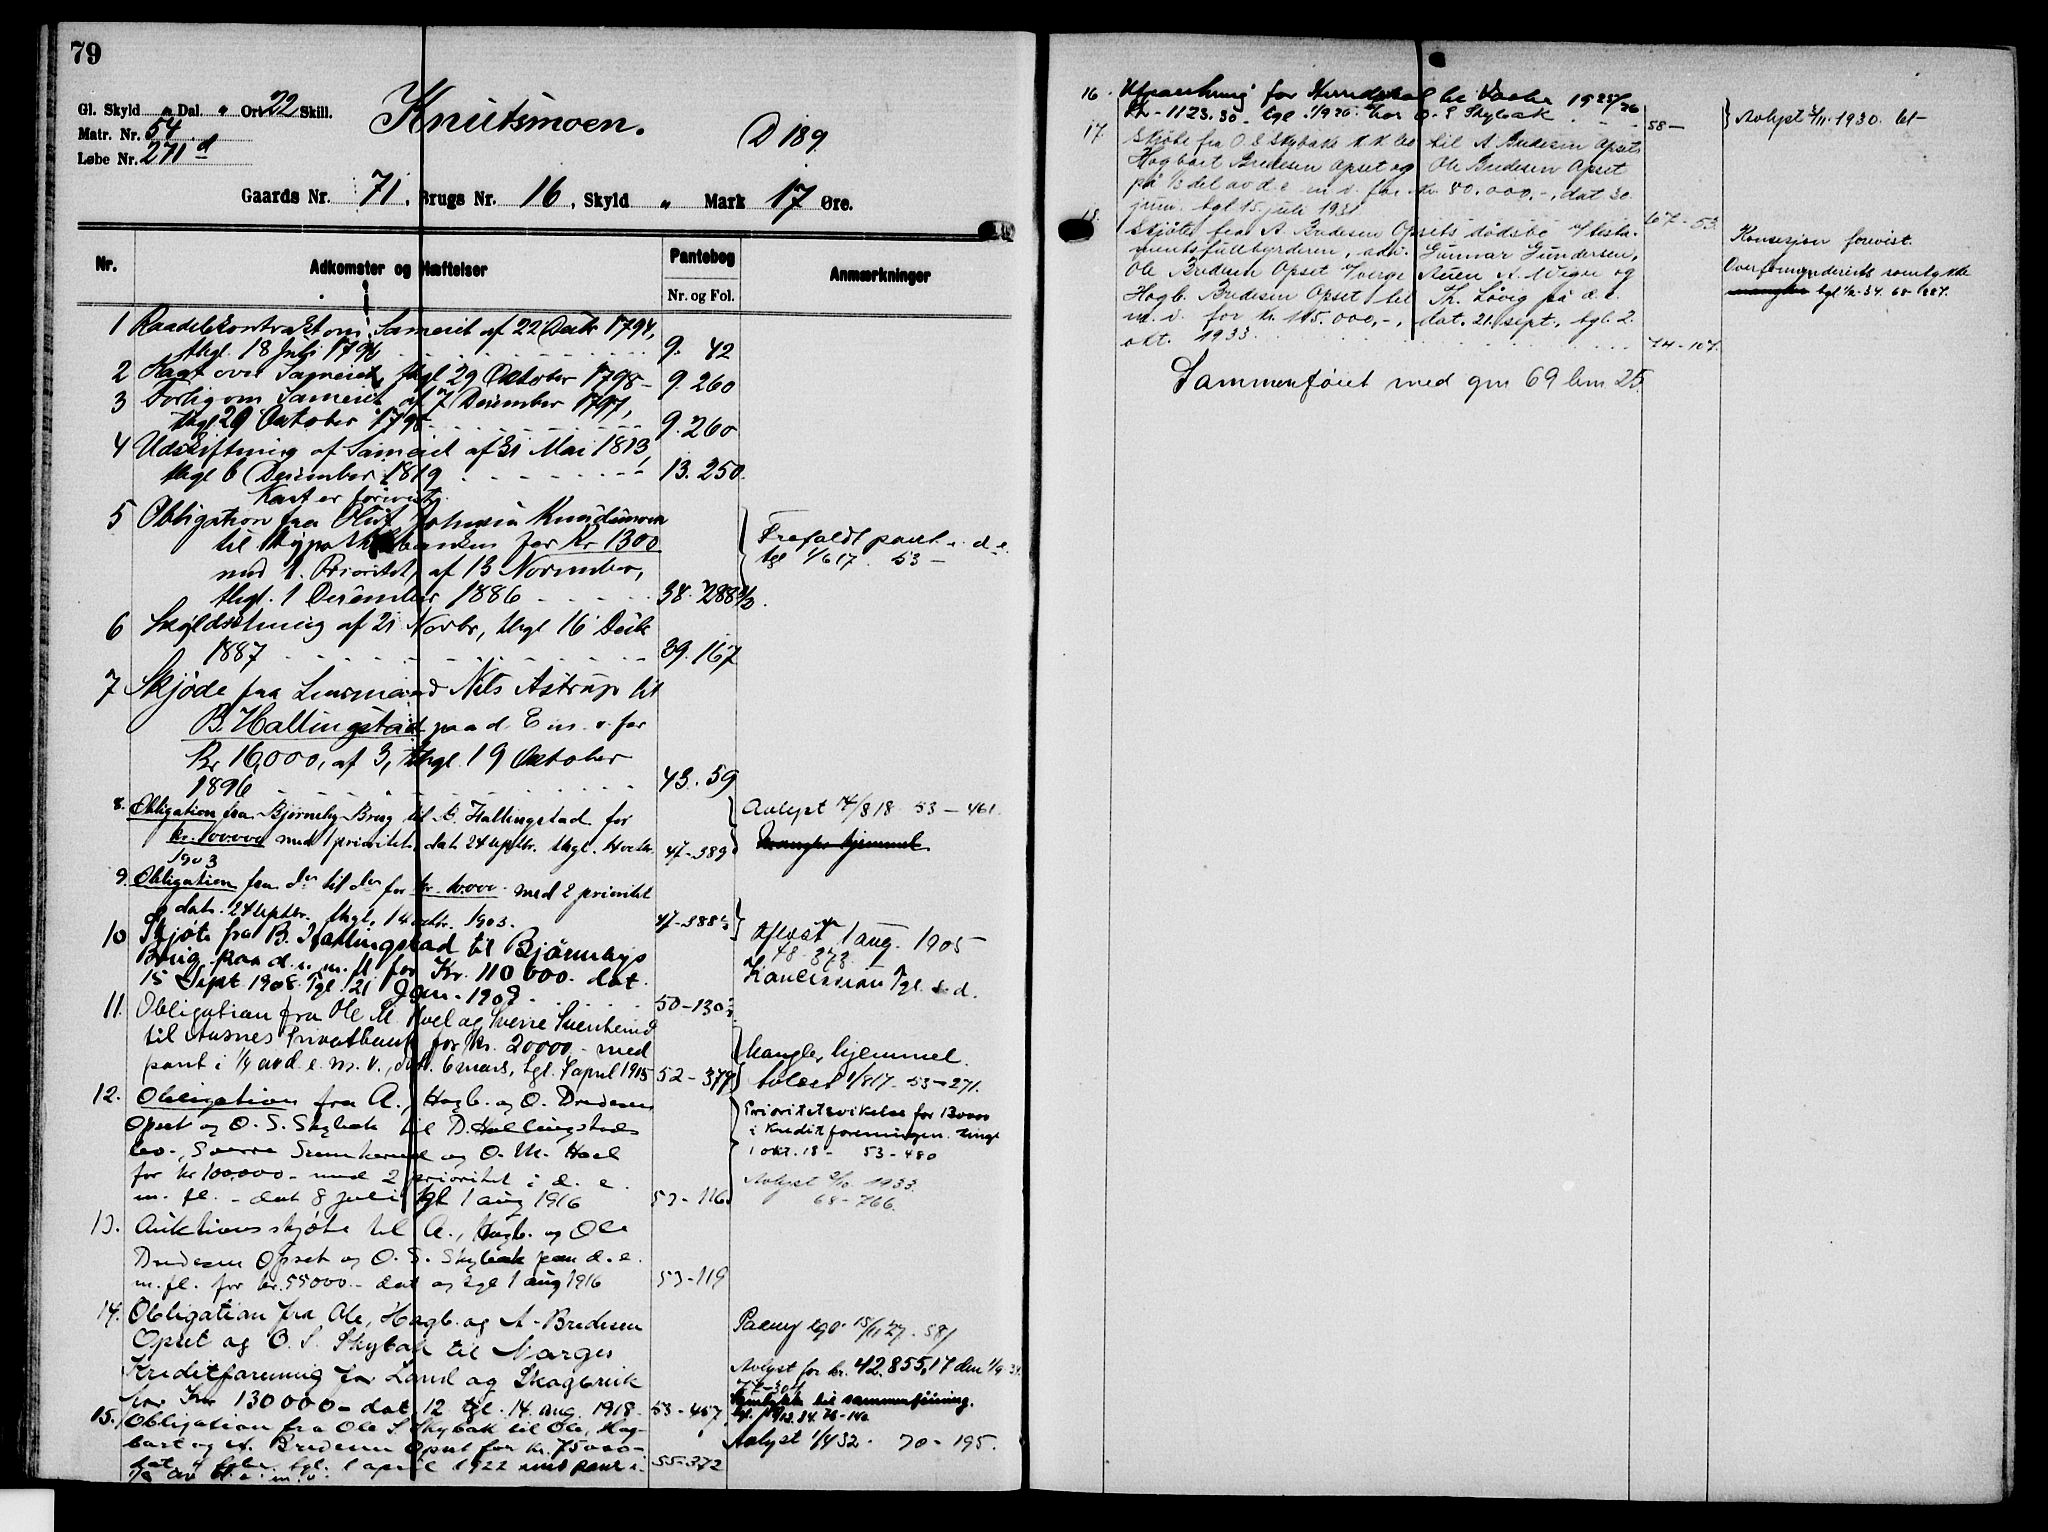 79
Gl. Skyld " Dal. " Ort 22 Skill.
Matr. Nr. 54
Løbe Nr. 271 d
Knutsmoen.
D 189
Gaards Nr. 71, Brugs Nr. 16, Skyld " Mark 17 Øre.
Nr.
Adkomster og Hæftelser
Pantebog
Nr. og Fol.
Anmærkninger
1 Raadelskontrakt om Sameiet af 22 Decbr 1794,
thgl. 18 Juli 1796 9. 42
2 Pagt over Sameiet, thgl 29 Oktober 1798 9. 260
3 Forlig om Sameiet af 7 December 1797,
thgl 29 Oktober 1798 9. 260
4 Udskiftning af Sameiet af 31 Mai 1813,
thgl 6 December 1819 13. 250.
Kart er forevist.
5 Obligation fra Oluf Johnsen Knudsmoen
til Hypothekbanken for Kr 1300
med 1. Prioritet, af 13 November,
thgl. 1 December 1886 38. 288
Frafaldt pant i d. e.
tgl 1/6 17. 53 -
6 Skyldsetning af 21 Novbr, thgl 16 Decbr
1887 39. 167
7 Skjøde fra Lensmand Nils Astrup til
B. Hallingstad paa d. E m. v. for
Kr 16,000, af 3, thgl. 19 Oktober
1896 43. 59
8. Obligation fra Bjørneby Brug til B. Hallingstad for
kr. 100.000 med 1 prioritet, dat. 24 septbr. thgl. 14 octbr.
1903 47-389
Avlyst 14/8 18 53-461.
Mangler hjemmel
9. Obligation fra do til do for kr. 10.000 med 2 prioritet
dat. 24 septbr. thgl. 14 octbr. 1903. 47-388
Aflæst 1 aug. 1905
48. 373.
10 Skjøte fra B. Hallingstad til Bjørnebys
Brug paa d. e. m. fl for Kr. 110 000. dat.
15 Sept 1908. Tgl. 21 Jan. 1909 50-130
Koncession Tgl. s. d.
11. Obligation fra Ole M. Hoel og Sverre Svenkerud
til Aasnes Privatbank for kr. 20000.- med
pant i 1/4 av d. e. m. v., dat. 6 mars, tgl. 7 april 1915 52-379
Mangler hjemmel.
Avlæst 1/8 17 53-271.
12. Obligation fra A., Hagb. og O. Bredesen
Opset og O. S. Skybak til B. Hallingstads
bo, Sverre Svenkerud og O. M. Hoel
for kr 100,000 - med 2 prioritet i d. e.
m. fl. - dat 8 juli tgl 1 aug 1916 53-116
Prioritetsvikelse for 130000
i Kreditforeningen. tingl
1 okt. 18 - 53-480
Avlyst 2/10 1933.
68-766.
13. Auktionsskjøte til A., Hagb. og Ole
Bredesen Opset og O. S. Skybak paa d. e.
m. fl. for kr. 55000.- dat og tgl 1 aug 1916 53-119
14. Obligation fra Ole, Hagb. og A. Bredesen
Opset og O. S. Skybak til Norges
Kreditforening for Land og Skogbruk
for Kr 130000 - dat. 12 tgl. 14. aug. 1918 53-457
15/11 27. 58/
Avlyst for kr. 42.855,17 den 1/9-34.
Samtykke til sammenføining.
15. Obligation fra Ole S Skybak til Ole, Hag-
bart og A. Bredesen Opset for kr. 75000-
dat. febr. tgl. 1 april 1922 med pant i
av d. e. m. v. 55-372
Avlyst 1/4 32. 70-195.
16. Utpantning for Herredskas. i Vaaler 1925/26
Kr. 1123.30 tgl. 1926. hos O. S Skybak 58-
Avlyst 4/11 1930. 61-
17. Skjøte fra O. S Skybaks k.k. bo til A Bredesen Opset,
Hagbart Bredesen Opset og Ole Bredesen Opset
på 1/3 del av d. e m v. for kr 80.000,-, dat 30
juni, tgl 15. juli 1931 67-53.
18. Skjøte fra A. Bredesen Opsets dødsbo v/testa-
mentsfullbyrderen, adv. Gunnar Gundersen,
Ole Bredesen Opset v/verge og
Hagb. Bredesen Opset til Th. Løvig på d. e.
m. v. for kr. 115.000,-, dat. 21. sept., tgl. 2.
okt. 1933 74-107.
Konsesjon forevist.
Overformynderiets samtykke
mangler
Sammenføiet med gnr 69 bnr 25.